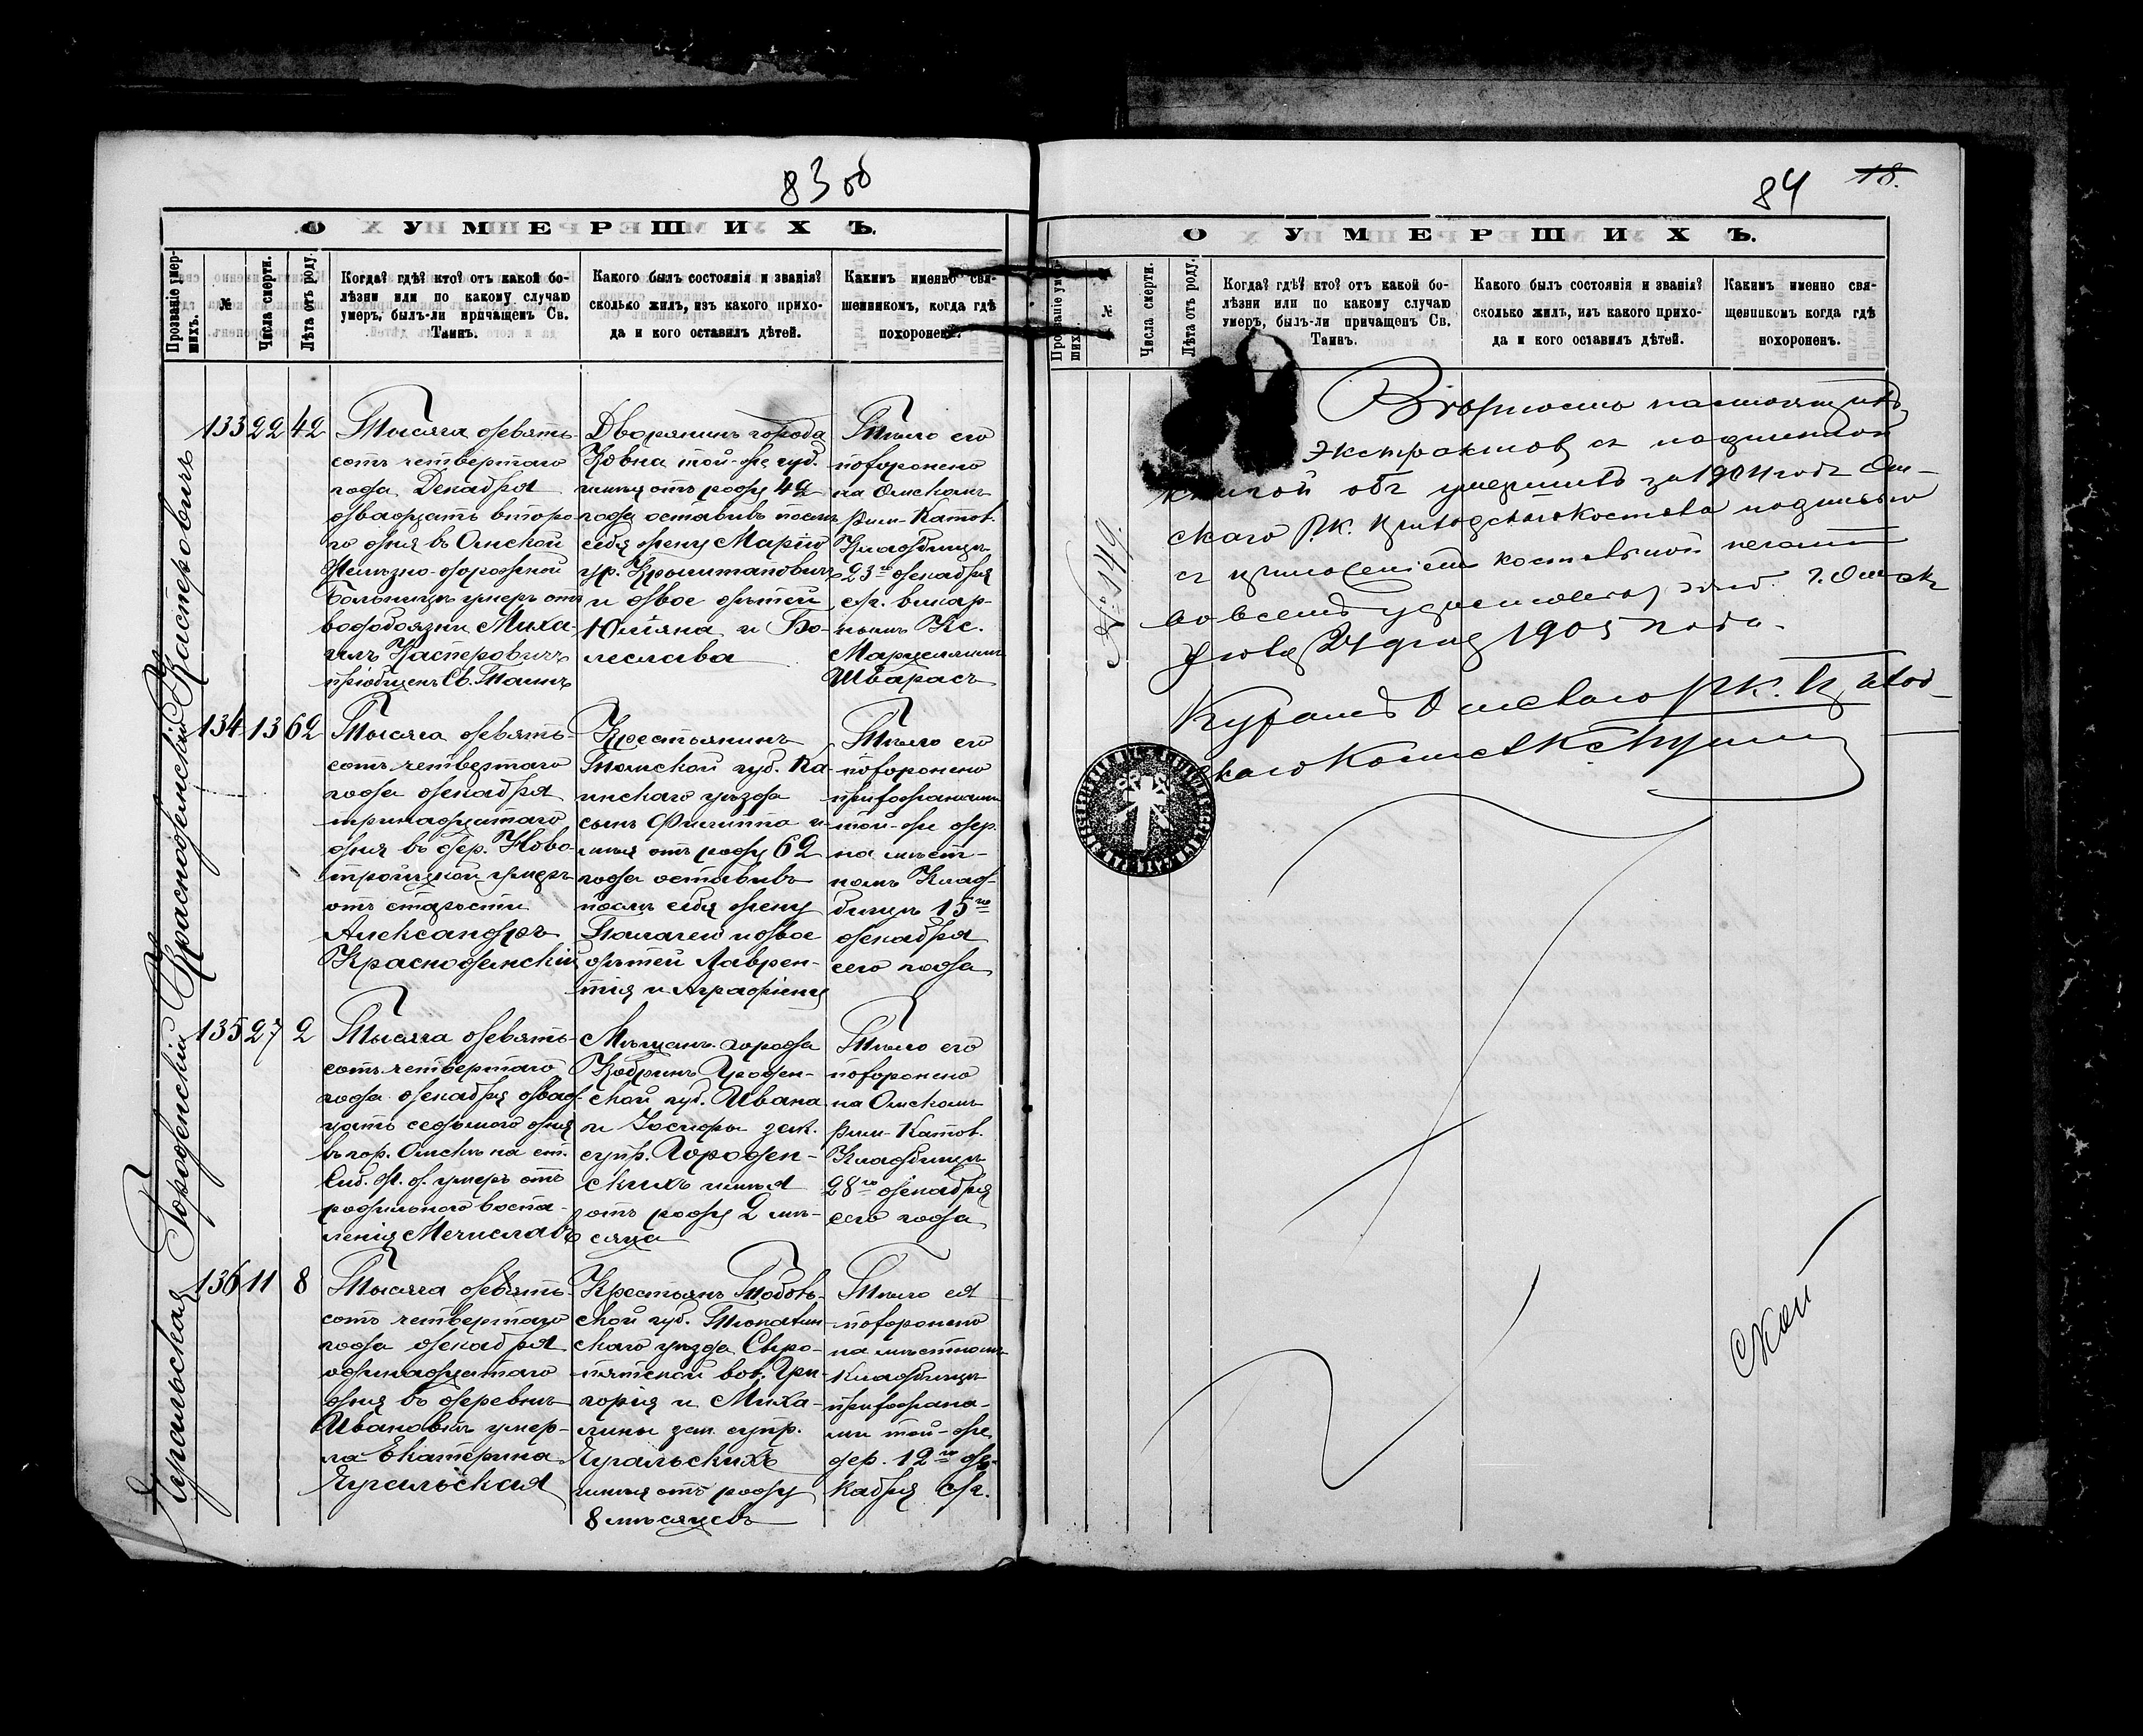 83 об
О УМЕРШИХЪ.
Прозваніе умер-
шихъ.
№
Числа смерти.
Лѣта отъ роду.
Когда? гдѣ? кто? отъ какой бо-
лѣзни или по какому случаю
умеръ, былъ-ли причащенъ Св.
Таинъ.
Какого былъ состоянія и званія?
сколько жилъ, изъ какого прихо-
да и кого оставилъ дѣтей.
Какимъ именно свя-
щенникомъ, когда гдѣ
похороненъ.
Касперовичъ
133
22
42
Тысяча девять-
сотъ четвертаго
года Декабря
двадцать второ-
го дня въ Омской
Желѣзно-дорожной
больницѣ умеръ отъ
водобоязни Миха-
илъ Касперовичъ
пріобщенъ Св. Таинъ
Дворянинъ города
Ковна той-же губ.
имѣя отъ роду 42
года оставивъ послѣ
себя жену Марію
ур. Крыштановичъ
и двое дѣтей
Юліяна и Бо-
леслава
Тѣло его
похоронено
на Омскомъ
Рим-Катол.
Кладбищѣ
23го декабря
с/г. викар-
нымъ Кс.
Марцеліимъ
Шварасъ
Красноденскій
134
13
62
Тысяча девять-
сотъ четвертаго
года декабря
тринадцатаго
дня въ дер. Ново-
троицкой умеръ
отъ старости
Александръ
Красноденскій
Крестьянинъ
Томской губ. Ка-
инскаго уѣзда
сынъ Филиппа и-
мѣя отъ роду 62
года оставивъ
послѣ себя жену
Пелагею и двое
дѣтей Лаврен-
тія и Аграфіену
Тѣло его
похоронено
прихожанами
той-же дер.
на мѣст-
номъ Клад-
бищѣ 15го
декабря
сего года
Городенскій
135
27
2
Тысяча девять-
сотъ четвертаго
года декабря двад-
цать седьмого дня
въ гор. Омскѣ на ст.
Сиб. ж. д. умеръ отъ
родильного воспа-
ленія Мечиславъ
Мѣщанъ города
Кобринъ Гроден-
ской губ. Ивана
и Іосифы зак.
супр. Городен-
скихъ имѣя
отъ роду 2 мѣ-
сяца
Тѣло его
похоронено
на Омскомъ
Рим-Катол.
Кладбищѣ
28го декабря
сего года
136
11
8
Тысяча девять-
сотъ четвертаго
года декабря
одинадцатаго
дня въ деревнѣ
Ивановкѣ умер-
ла Екатерина
Крестьянъ Тобол-
ской губ. Тюкалин-
скаго уѣзда Сыро-
пятской вол. Гри-
горія и Миха-
лины зак. супр.
имѣя отъ роду
8 мѣсяцевъ
Тѣло ея
похоронено
на мѣстномъ
кладбищѣ
прихожана-
ми той-же
дер. 12го де-
кабря с/г.
84
18.
О УМЕРШИХЪ.
Прозваніе умер-
шихъ
№
Числа смерти.
Лѣта отъ роду.
Когда? гдѣ? кто? отъ какой бо-
лѣзни или по какому случаю
умеръ, былъ-ли причащенъ Св.
Таинъ.
Какого былъ состоянія и званія?
сколько жилъ, изъ какого прихо-
да и кого оставилъ дѣтей.
Какимъ именно свя-
щенникомъ когда гдѣ
похороненъ.
№ 149.
Вѣрность настоящихъ
экстрактовъ съ подлинной
книгой объ умершихъ за 1904 годъ Ом-
скаго Р.К. приходскаго костела подписью
съ приложеніемъ костельной печати
г. Омскъ
24 дня 1905 года.
Куратъ Омскаго Р.К. Приход-
скаго Костела Кс.
ской